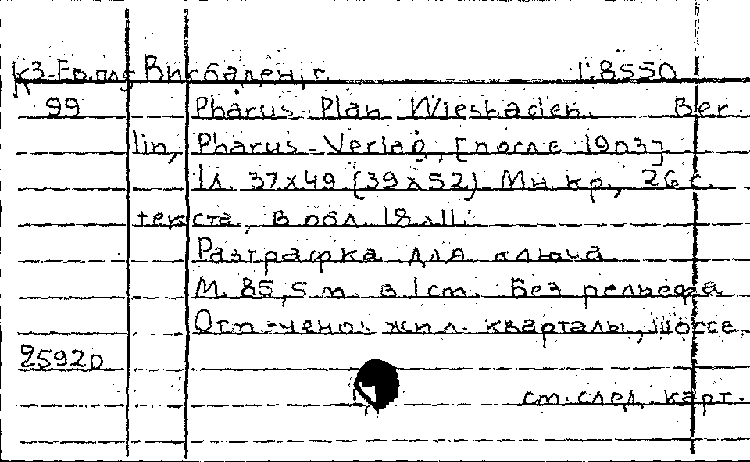 К3-Евр.пл. Висбаден, г. 1:8550
99 Pharus-Plan Wiesbaden. Ber-
lin, Pharus-Verlag, [после 1903].
1л. 37х49 (39х52) Мн. кр., 26 с.
текста, в обл. 18х11.
Разграфка для ключа
М. 85,5 m. в 1 cm. Без рельефа
Отмечено: жил. кварталы, шоссе,
25920
см. след. карт.